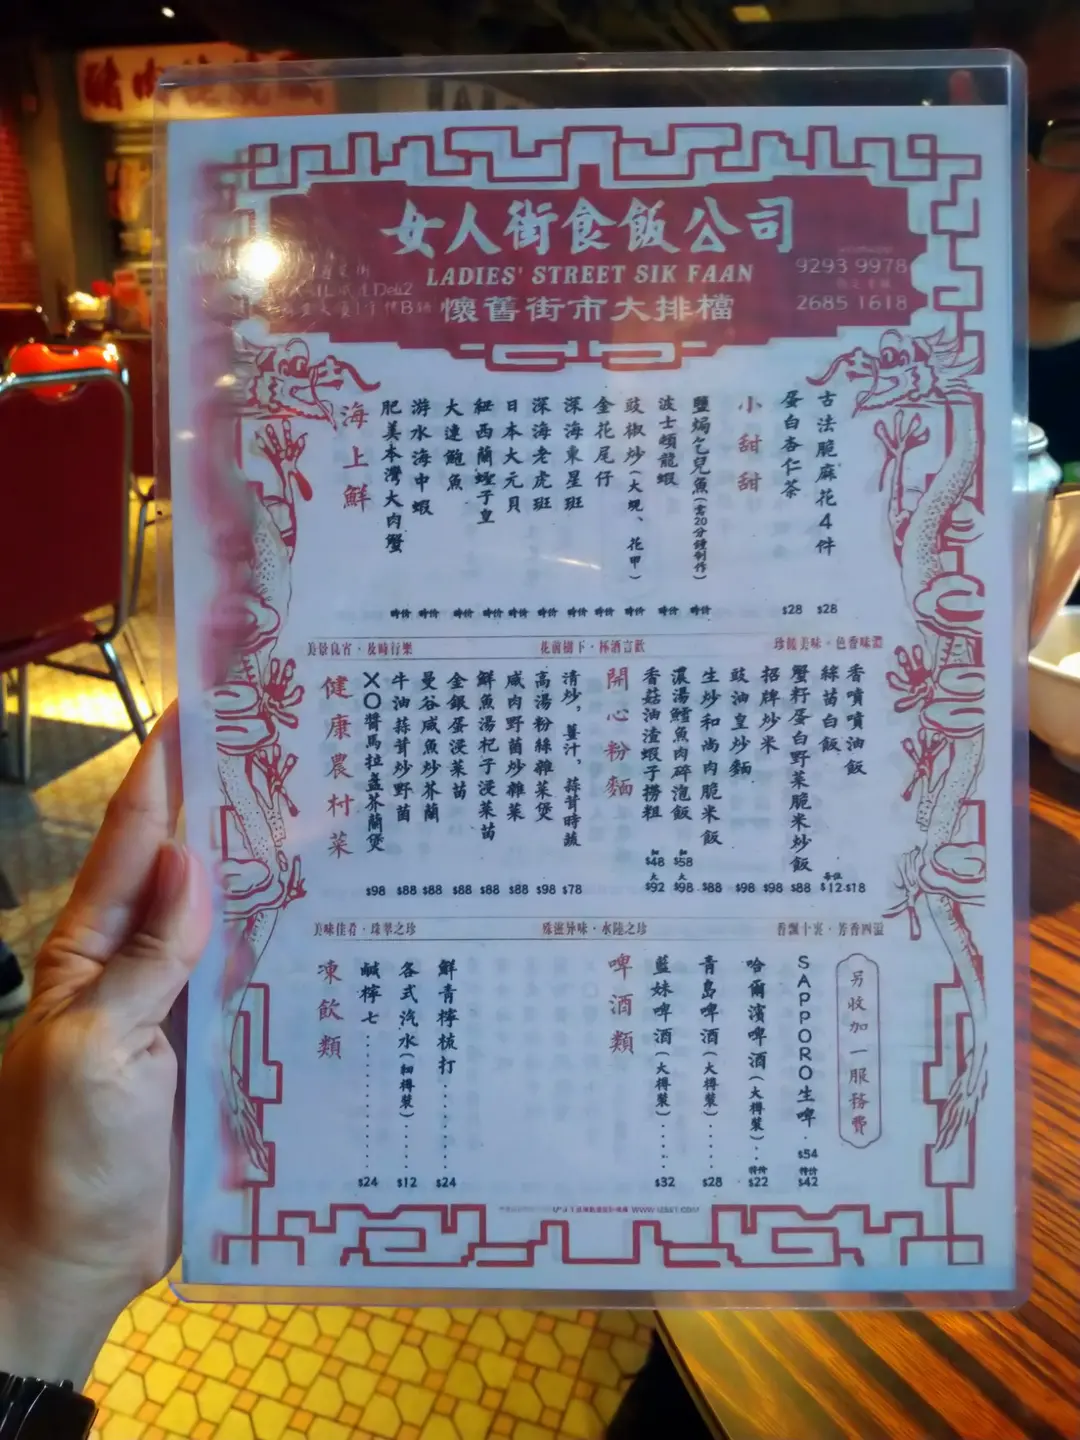 女人街食飯公司
LADIES' STREET SIK FAAN
懷舊街市大排檔
9293 9978
2685 1618
Deli2
小甜甜
古法脆麻花4件 $28
蛋白杏仁茶 $28
海上鮮
鹽焗乞兒魚(需20分鐘制作) 時价
波士頓龍蝦 時价
豉椒炒(大蜆、花甲) 時价
金花尾仔 時价
深海東星班 時价
深海老虎班 時价
日本大元貝 時价
紐西蘭蟶子皇 時价
大連鮑魚 時价
游水海中蝦 時价
肥美本灣大肉蟹 時价
美景良宵·及時行樂
花前樹下·杯酒言歡
珍饈美味·色香味濃
開心粉麵
香噴噴油飯 $18
絲苗白飯 每位 $12
蟹籽蛋白野菜脆米炒飯 $88
招牌炒米 $98
豉油皇炒麵 $98
生炒和尚肉脆米飯 $88
濃湯鱈魚肉碎泡飯 細 $58 大 $98
香菇油渣蝦子撈粗 細 $48 大 $92
健康農村菜
清炒，薑汁，蒜茸時蔬 $78
高湯粉絲雜菜煲 $98
咸肉野菌炒雜菜 $88
鮮魚湯杞子浸菜苗 $88
金銀蛋浸菜苗 $88
曼谷咸魚炒芥蘭 $88
牛油蒜茸炒野菌 $88
XO醬馬拉盞芥蘭煲 $98
美味佳肴·珠翠之珍
殊滋异味·水陸之珍
香飄十裏·芳香四溢
另收加一服務費
啤酒類
SAPPORO生啤 · $54 特价 $42
哈爾濱啤酒(大樽裝)·· 特价 $22
青島啤酒(大樽裝)····· $28
藍妹啤酒(大樽裝)····· $32
凍飲類
鮮青檸梳打········ $24
各式汽水(細樽裝)···· $12
鹹檸七············ $24